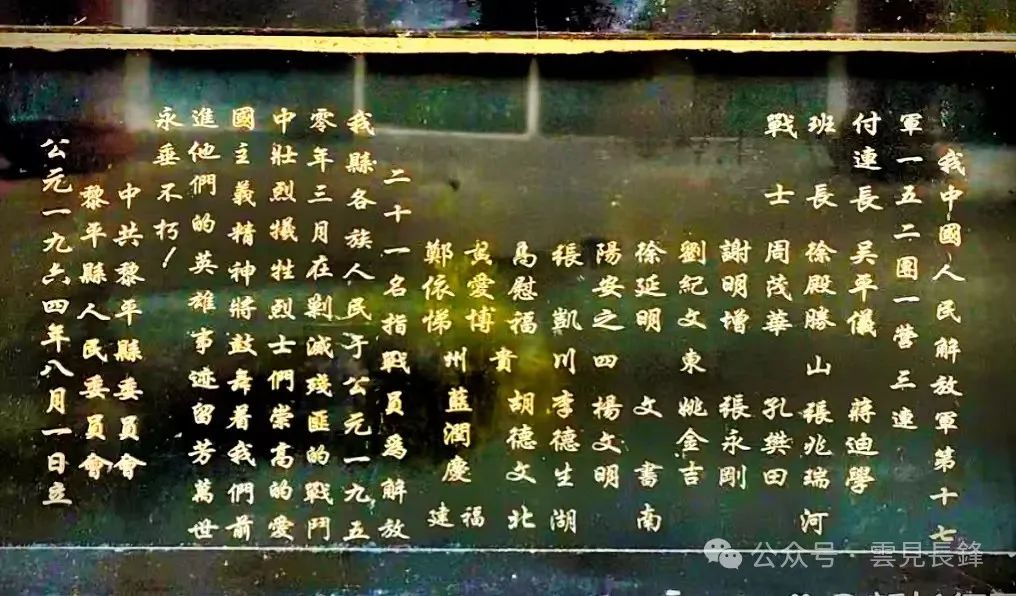 我中國人民解放軍第十七
軍一五二團一營三連
付連長 吴平儀 蔣迪學
班長 徐殿勝山張兆瑞河
戰士 周茂華 孔樊田
謝明增 張永剛
劉紀文東姚金吉
徐延明 文書南
陽安之四楊文明
張凱川李德生湖
馬慰福 胡德文北
貴
愛博 州藍潤慶福
鄭依悌 建
二十一名指戰員爲解放
我縣各族人民于公元一九五
零年三月在剿滅殘匪的戰鬥
中壯烈犧牲烈士們崇高的愛
國主義精神將鼓舞着我們前
進他們的英雄事迹留芳萬世
永垂不朽！
中共黎平縣委員會
黎平縣人民委員會
公元一九六四年八月一日立
公众号·雲見長鋒